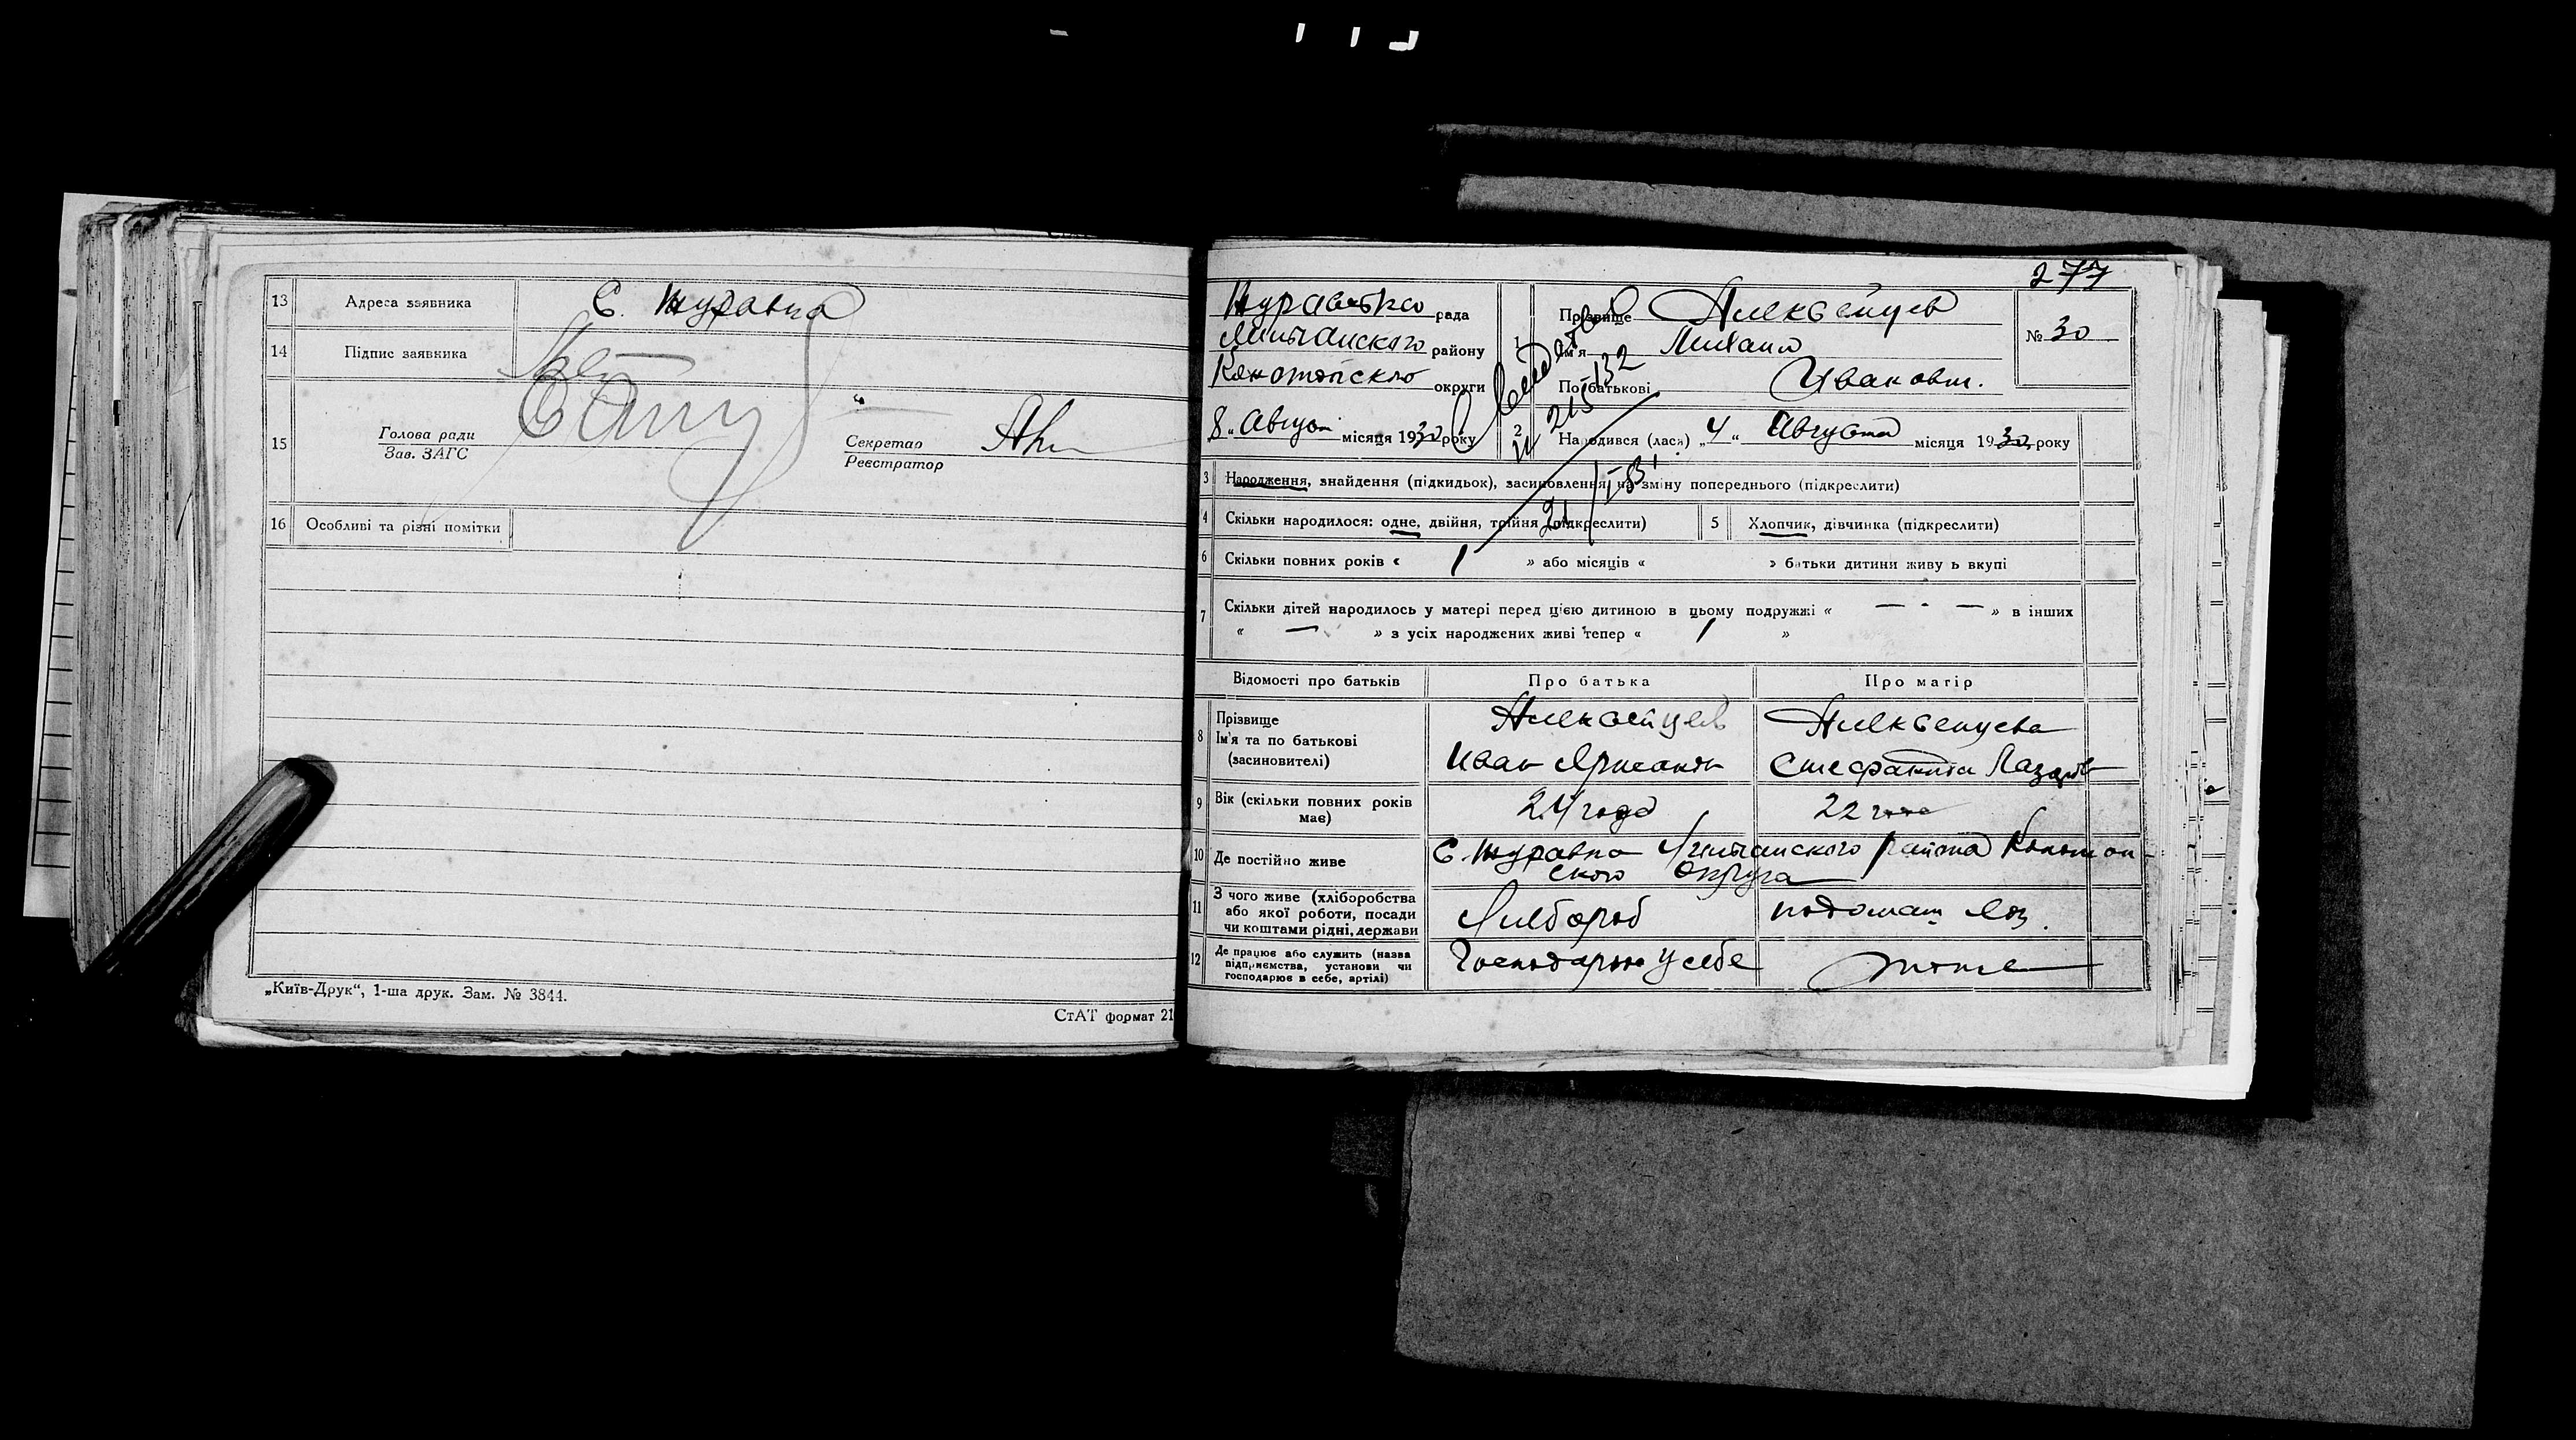 13 Адреса заявника С. Журавка
14 Підпис заявника
15 Голова ради
Зав. ЗАГС
Секретар
Реєстратор
16 Особливі та різні помітки
„Київ-Друк“, 1-ша друк. Зам. № 3844.
СтАТ формат 21
277
рада
району
округи
8 „ Август місяця 1930 року
1 Прізвище Алексейцев
Ім'я Михаил
По батькові Иванович.
№ 30
2 Народився (лася) „4“ Августа місяця 1930 року
3 Народження, знайдення (підкидьок), засиновлення, на зміну попереднього (підкреслити)
4 Скільки народилося: одне, двійня, трійня (підкреслити)
5 Хлопчик, дівчинка (підкреслити)
6 Скільки повних років « 1 » або місяців « » батьки дитини живуть вкупі
7 Скільки дітей народилось у матері перед цією дитиною в цьому подружжі « — - — » в інших
« — » з усіх народжених живі тепер « 1 »
Відомості про батьків Про батька Про матір
8 Прізвище Алексейцев Алексейцева
Ім'я та по батькові Иван Стефанида Лазар
(засиновителі)
9 Вік (скільки повних років має) 24 года 22 года
10 Де постійно живе С. Журавка района Конотоп-
ского Округа
11 З чого живе (хліборобства
або якої роботи, посади
чи коштами рідні, держави
Хлебороб
12 Де працює або служить (назва
підприємства, установи чи
господарює в себе, артілі)
у себе тоже